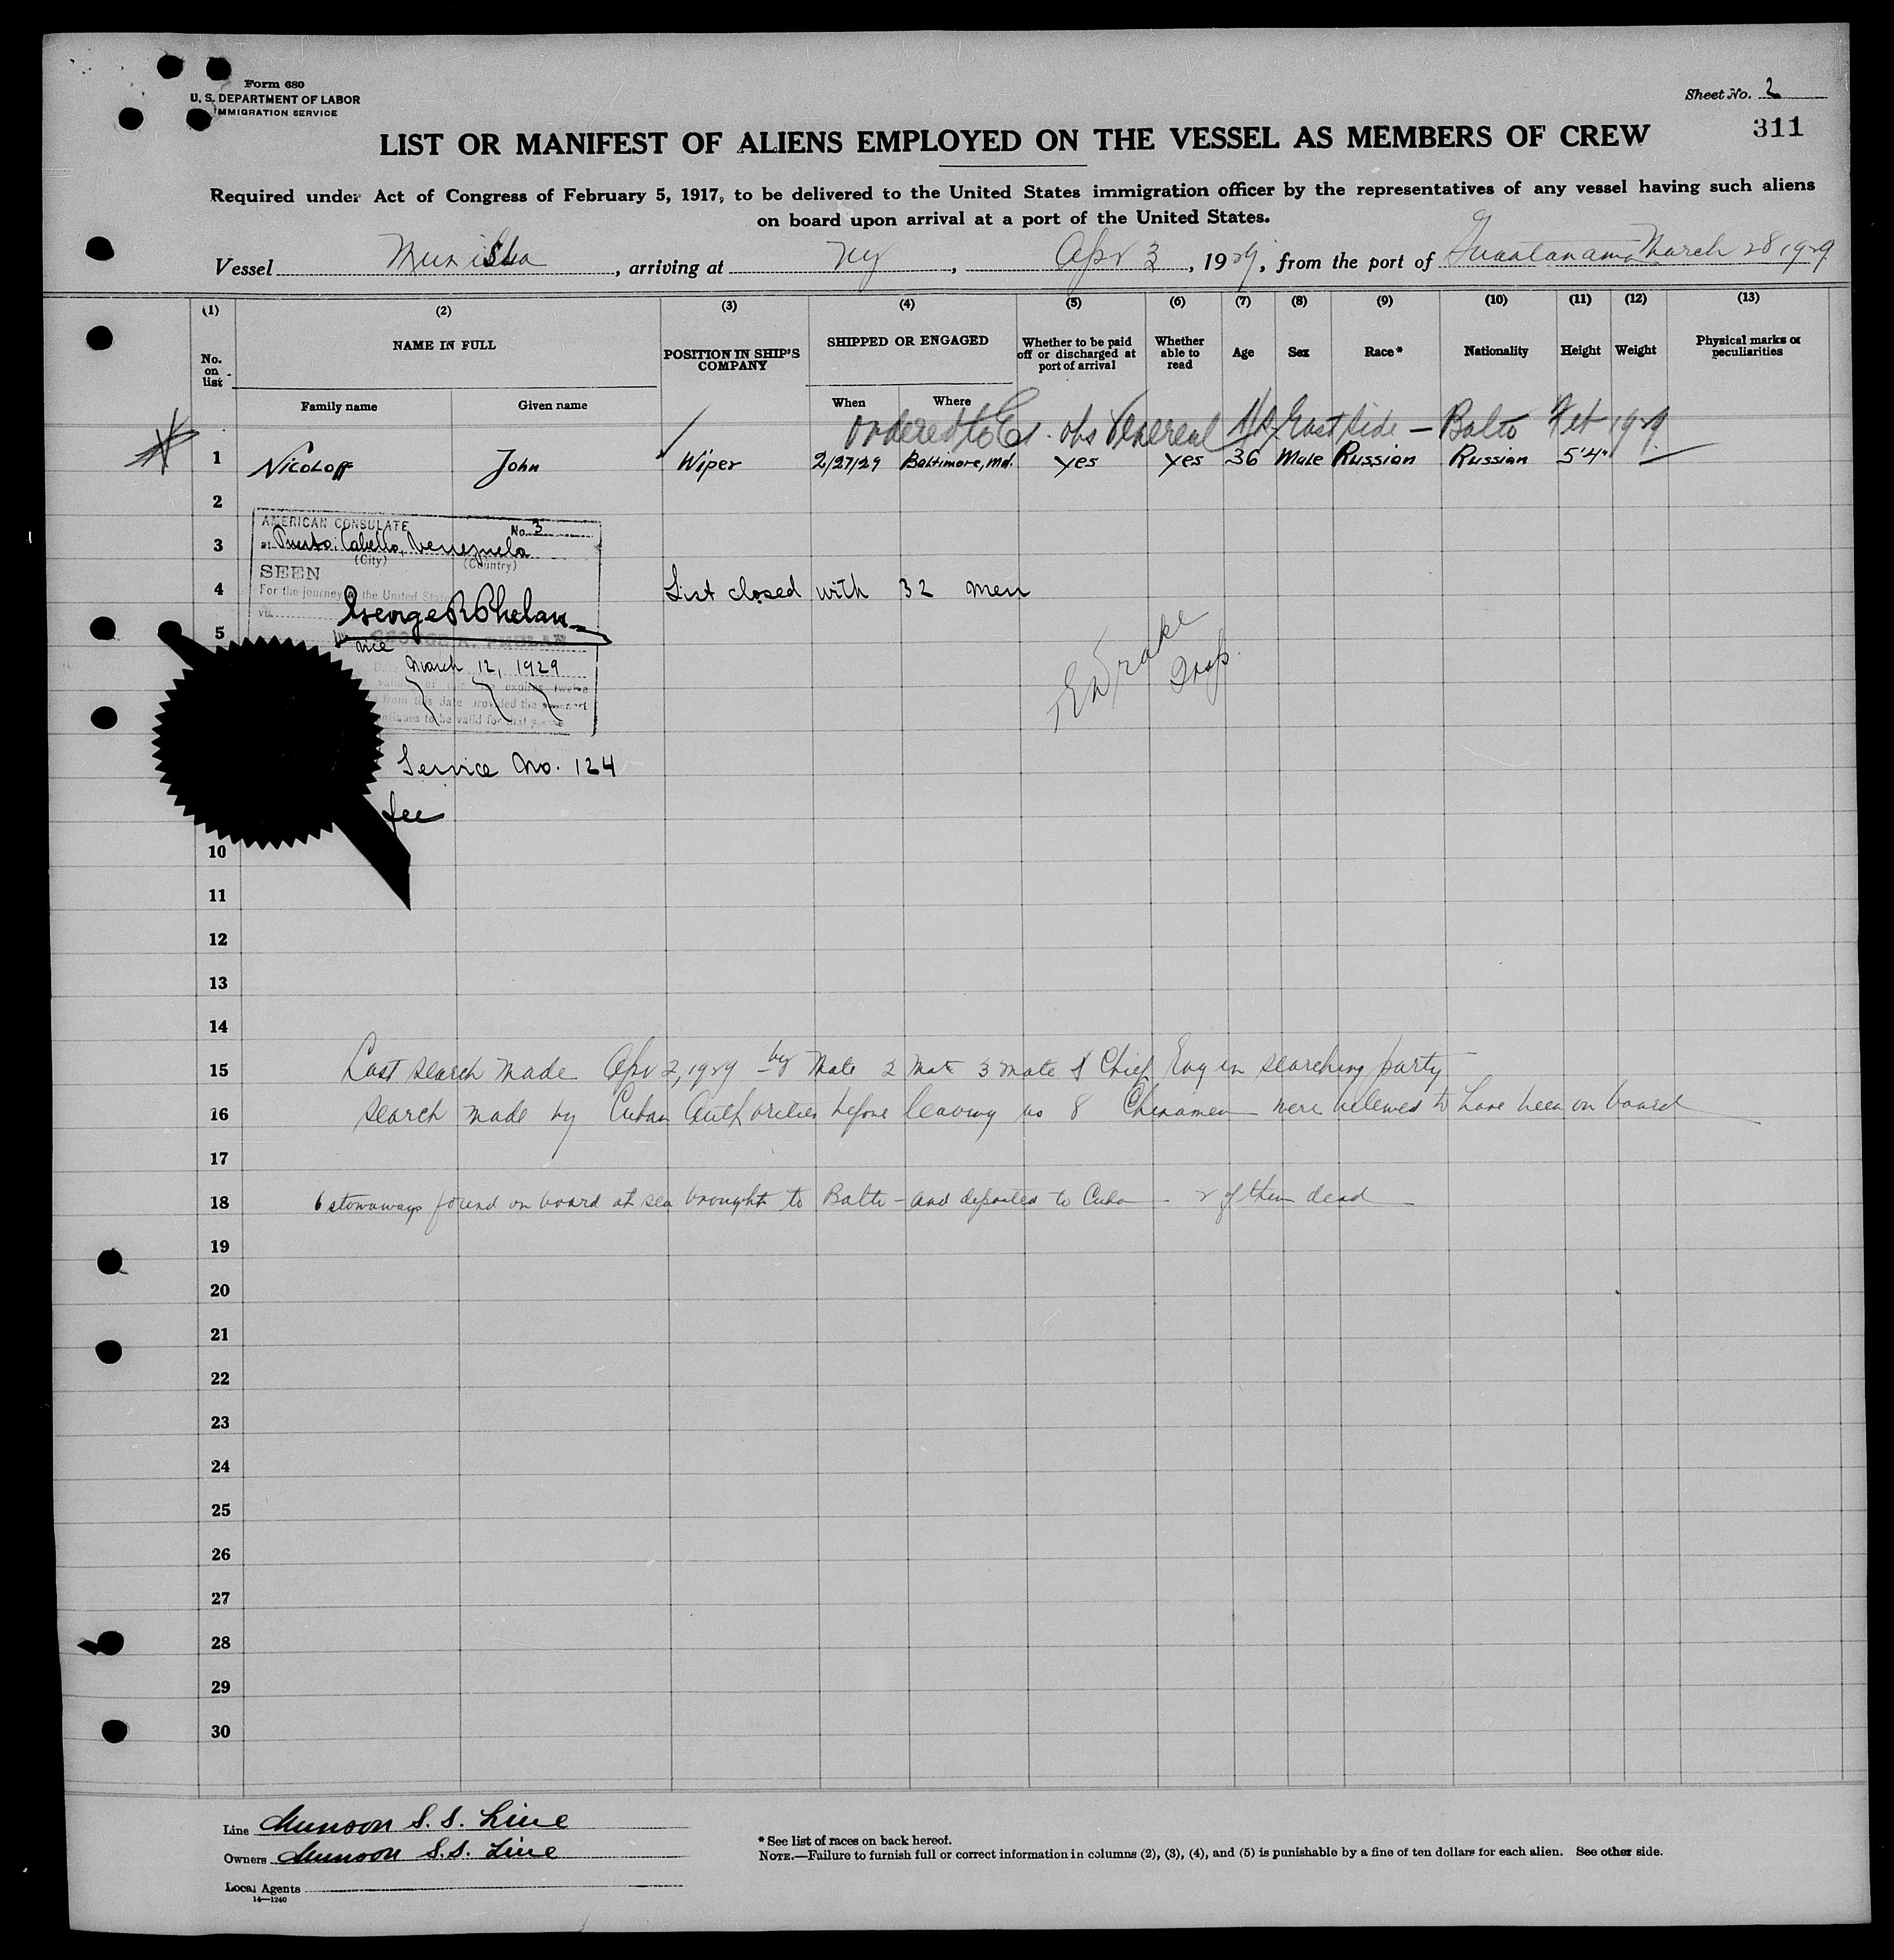 Form 680
U. S. DEPARTMENT OF LABOR
IMMIGRATION SERVICE
Sheet No. 2
311
LIST OR MANIFEST OF ALIENS EMPLOYED ON THE VESSEL AS MEMBERS OF CREW
Required under Act of Congress of February 5, 1917, to be delivered to the United States immigration officer by the representatives of any vessel having such aliens
on board upon arrival at a port of the United States.
Vessel , arriving at NY , Apr 3 , 1929, from the port of Guantanamo March 28 1929
(1) (2) (3) (4) (5) (6) (7) (8) (9) (10) (11) (12) (13)
No. on list NAME IN FULL POSITION IN SHIP'S COMPANY SHIPPED OR ENGAGED Whether to be paid off or discharged at port of arrival Whether able to read Age Sex Race* Nationality Height Weight Physical marks or peculiarities
Family name Given name When Where
ordered to obs Venereal East Side – Balto Feb 1929
1 Nicoloff John Wiper 2/27/29 Baltimore, Md. yes yes 36 Male Russian Russian 5'4"
2
AMERICAN CONSULATE No. 3
3 at Puerto Cabello, Venezuela
(City) (Country)
SEEN
4 For the journey to the United States List closed with 32 men
via
George R Phelan
5 GEORGE R. PHELAN
vice
March 12, 1929
expires twelve
from this date provided the passport
continues to be valid for that
E Drake
Insp.
Service No. 124
fee
10
11
12
13
14
15 Last search made Apr 2, 1929 by Mate 2 Mate 3 mate & Chief Eng in searching party
16 search made by Cuban Authorities before leaving as 8 Chinamen were believed to have been on board
17
18 6 stowaways found on board at sea brought to Balto – and deported to Cuba – 2 of them dead
19
20
21
22
23
24
25
26
27
28
29
30
Line Munson S.S. Line
Owners Munson S.S. Line
Local Agents
14—1240
* See list of races on back hereof.
NOTE.—Failure to furnish full or correct information in columns (2), (3), (4), and (5) is punishable by a fine of ten dollars for each alien. See other side.